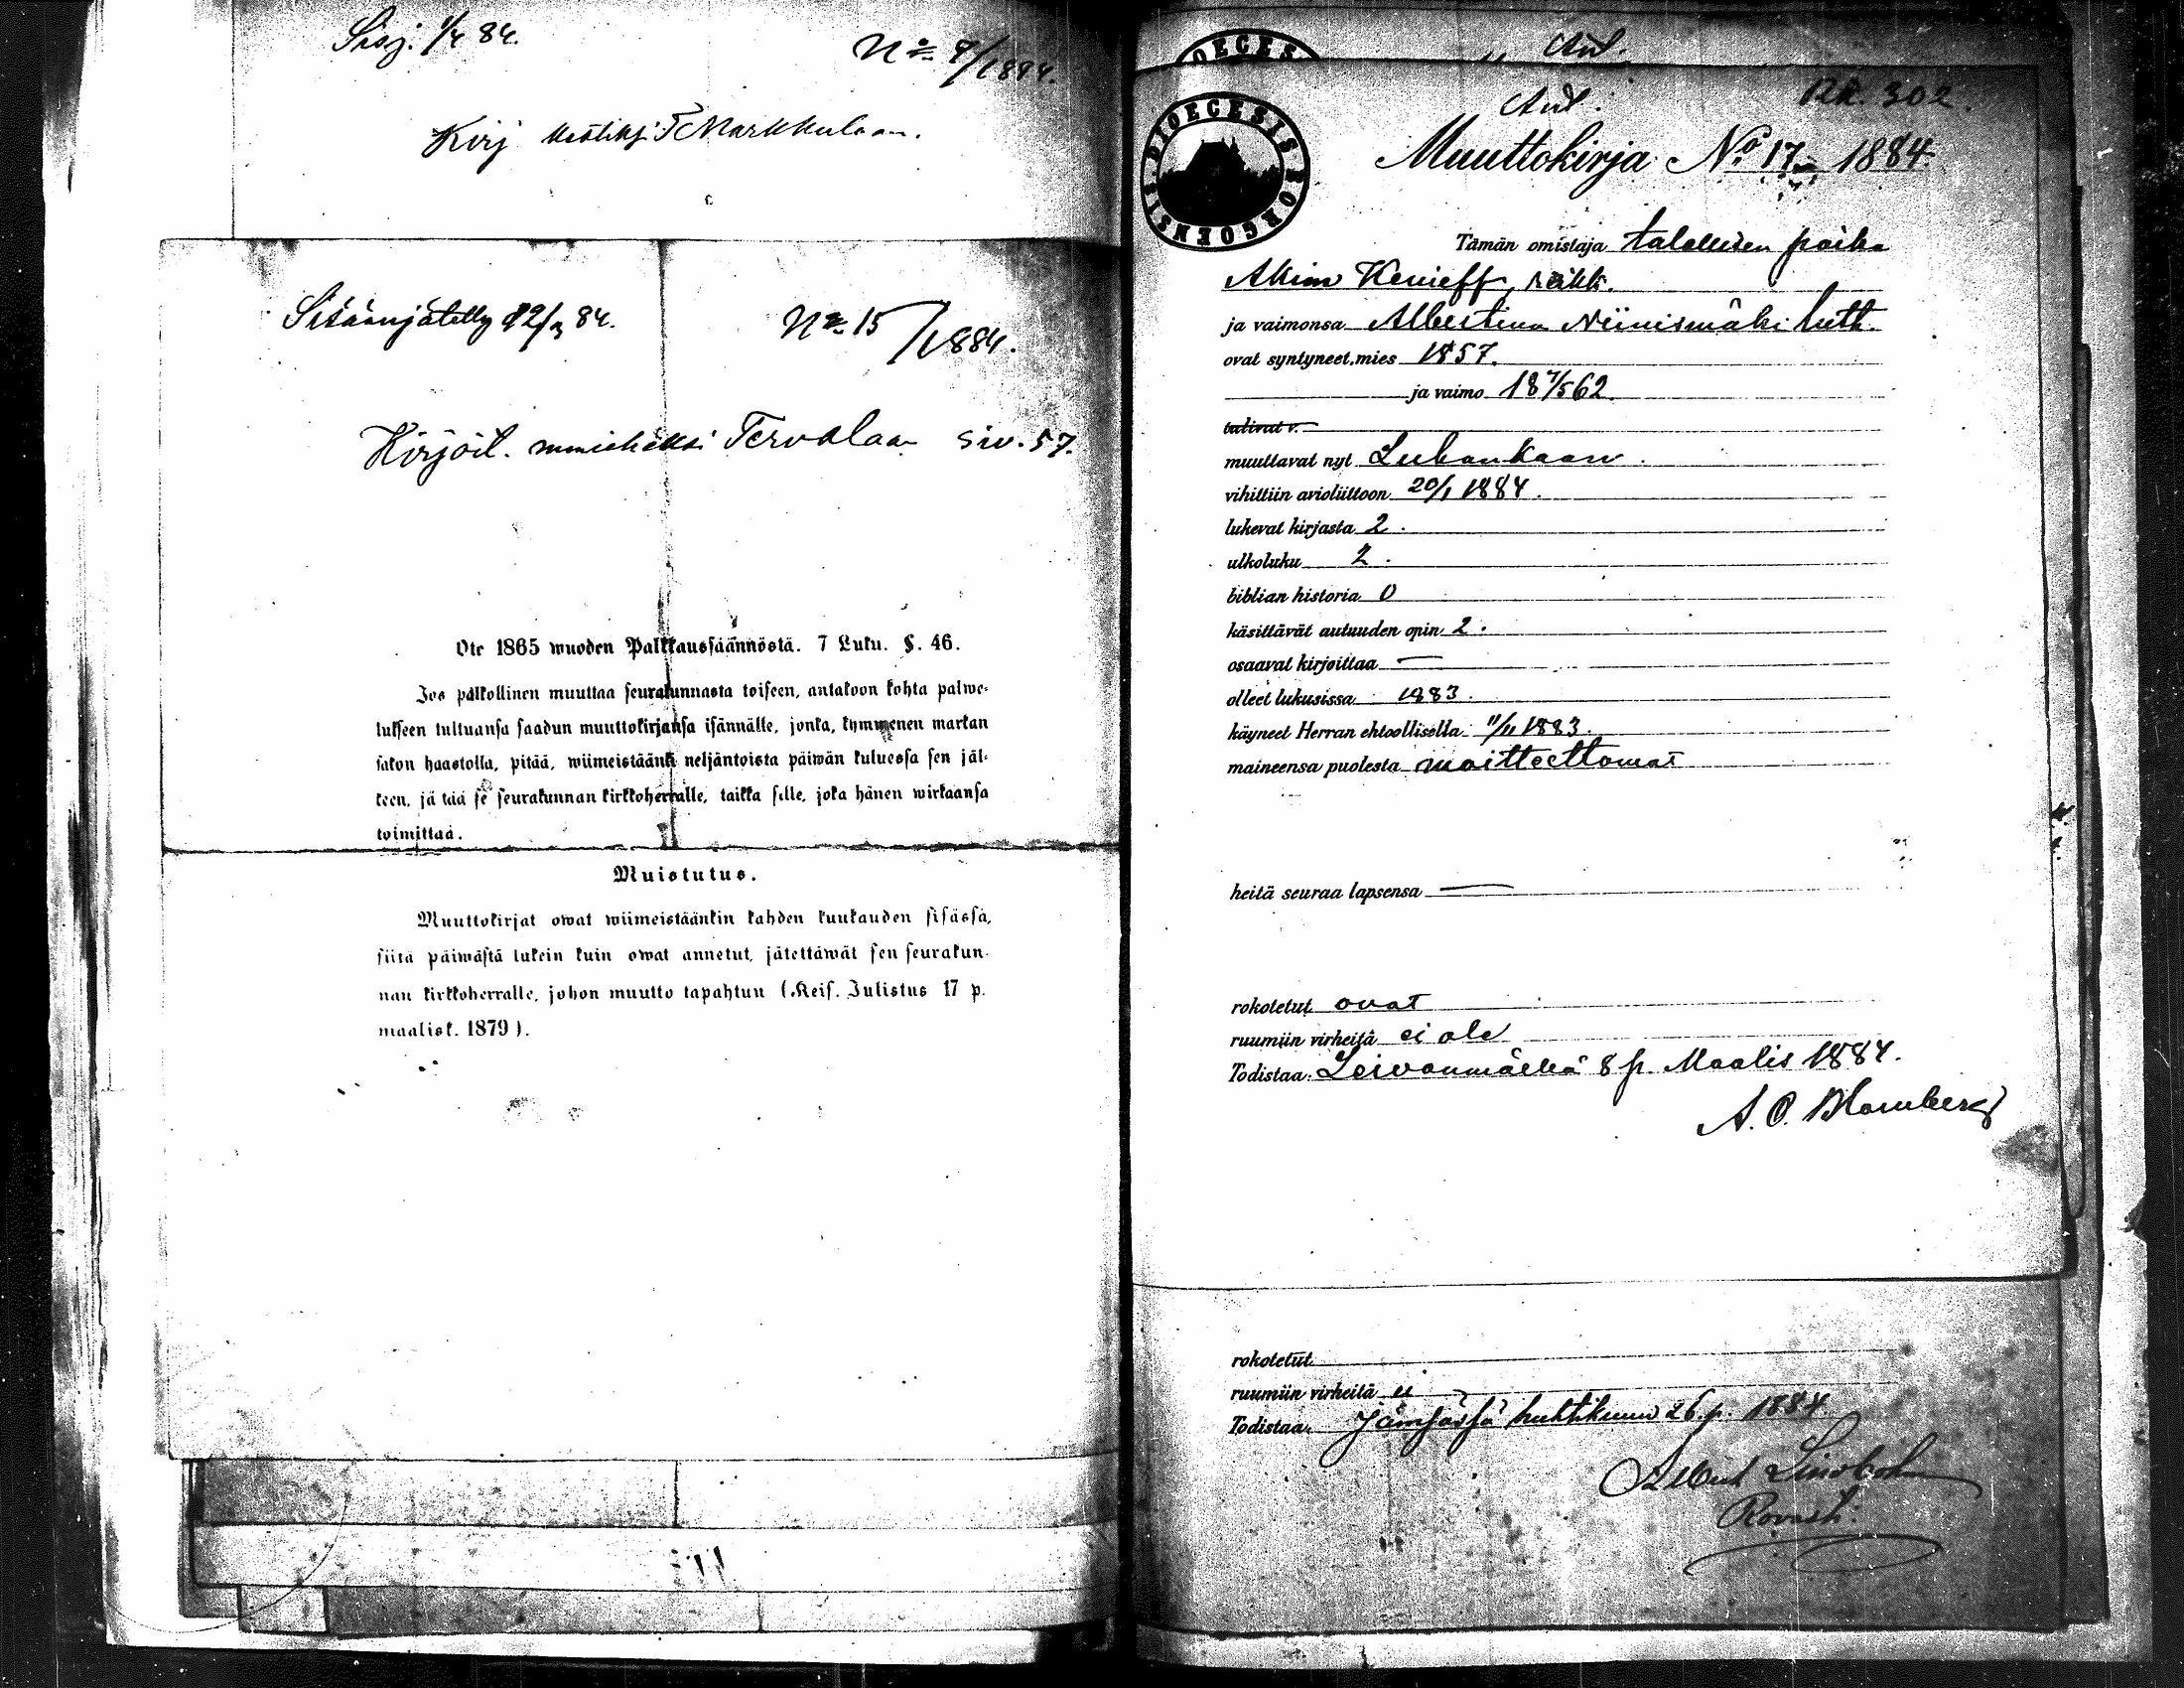 Sisj. 1/4 84.
No 9/1884.
Kirj Markkulaan.
Sisäänjätetty 12/3 84.
No 15/1884.
Kirjoit. Tervalaan siv. 57.
Ote 1865 wuoden Palkkaussäännöstä. 7 Luku. §. 46.
Jos palkollinen muuttaa seurakunnasta toiseen, antakoon kohta palwe-
lukseen tultuansa saadun muuttokirjansa isännälle, jonka, kymmenen markan
sakon haastolla, pitää, wiimeistäänki neljäntoista päiwän kuluessa sen jäl-
keen, jättää se seurakunnan kirkkoherralle, taikka sille, joka hänen wirkaansa
toimittaa.
Muistutus.
Muuttokirjat owat wiimeistäänkin kahden kuukauden sisässä,
siitä päiwästä lukein kuin owat annetut, jätettäwät sen seurakun-
nan kirkkoherralle, johon muutto tapahtuu (Keis. Julistus 17 p.
maalisk. 1879).
DIOECESIS BORGOENSIS
Rk. 302.
Muuttokirja No 17 1884.
Tämän omistaja talollisen poika
Akim Kenieff,
ja vaimonsa Albertina Niinismäki luth.
ovat syntyneet, mies 1857.
ja vaimo 18 7/5 62.
tulivat v.
muuttavat nyt Luhankaan.
vihittiin avioliittoon 20/1 1884.
lukevat kirjasta 2.
ulkoluku 2.
biblian historia 0
käsittävät autuuden opin 2.
osaavat kirjoittaa —
olleet lukusissa 1883.
käyneet Herran ehtoollisella 11/11 1883.
maineensa puolesta moitteettomat
heitä seuraa lapsensa —
rokotetut ovat
ruumiin virheitä ei ole
Todistaa: Leivonmäellä 8 p. Maalis 1884.
A. O. Blomberg
rokotetut
ruumiin virheitä ei
Todistaa: Jämsässä huhtikuun 26 p. 1884
Rovasti.